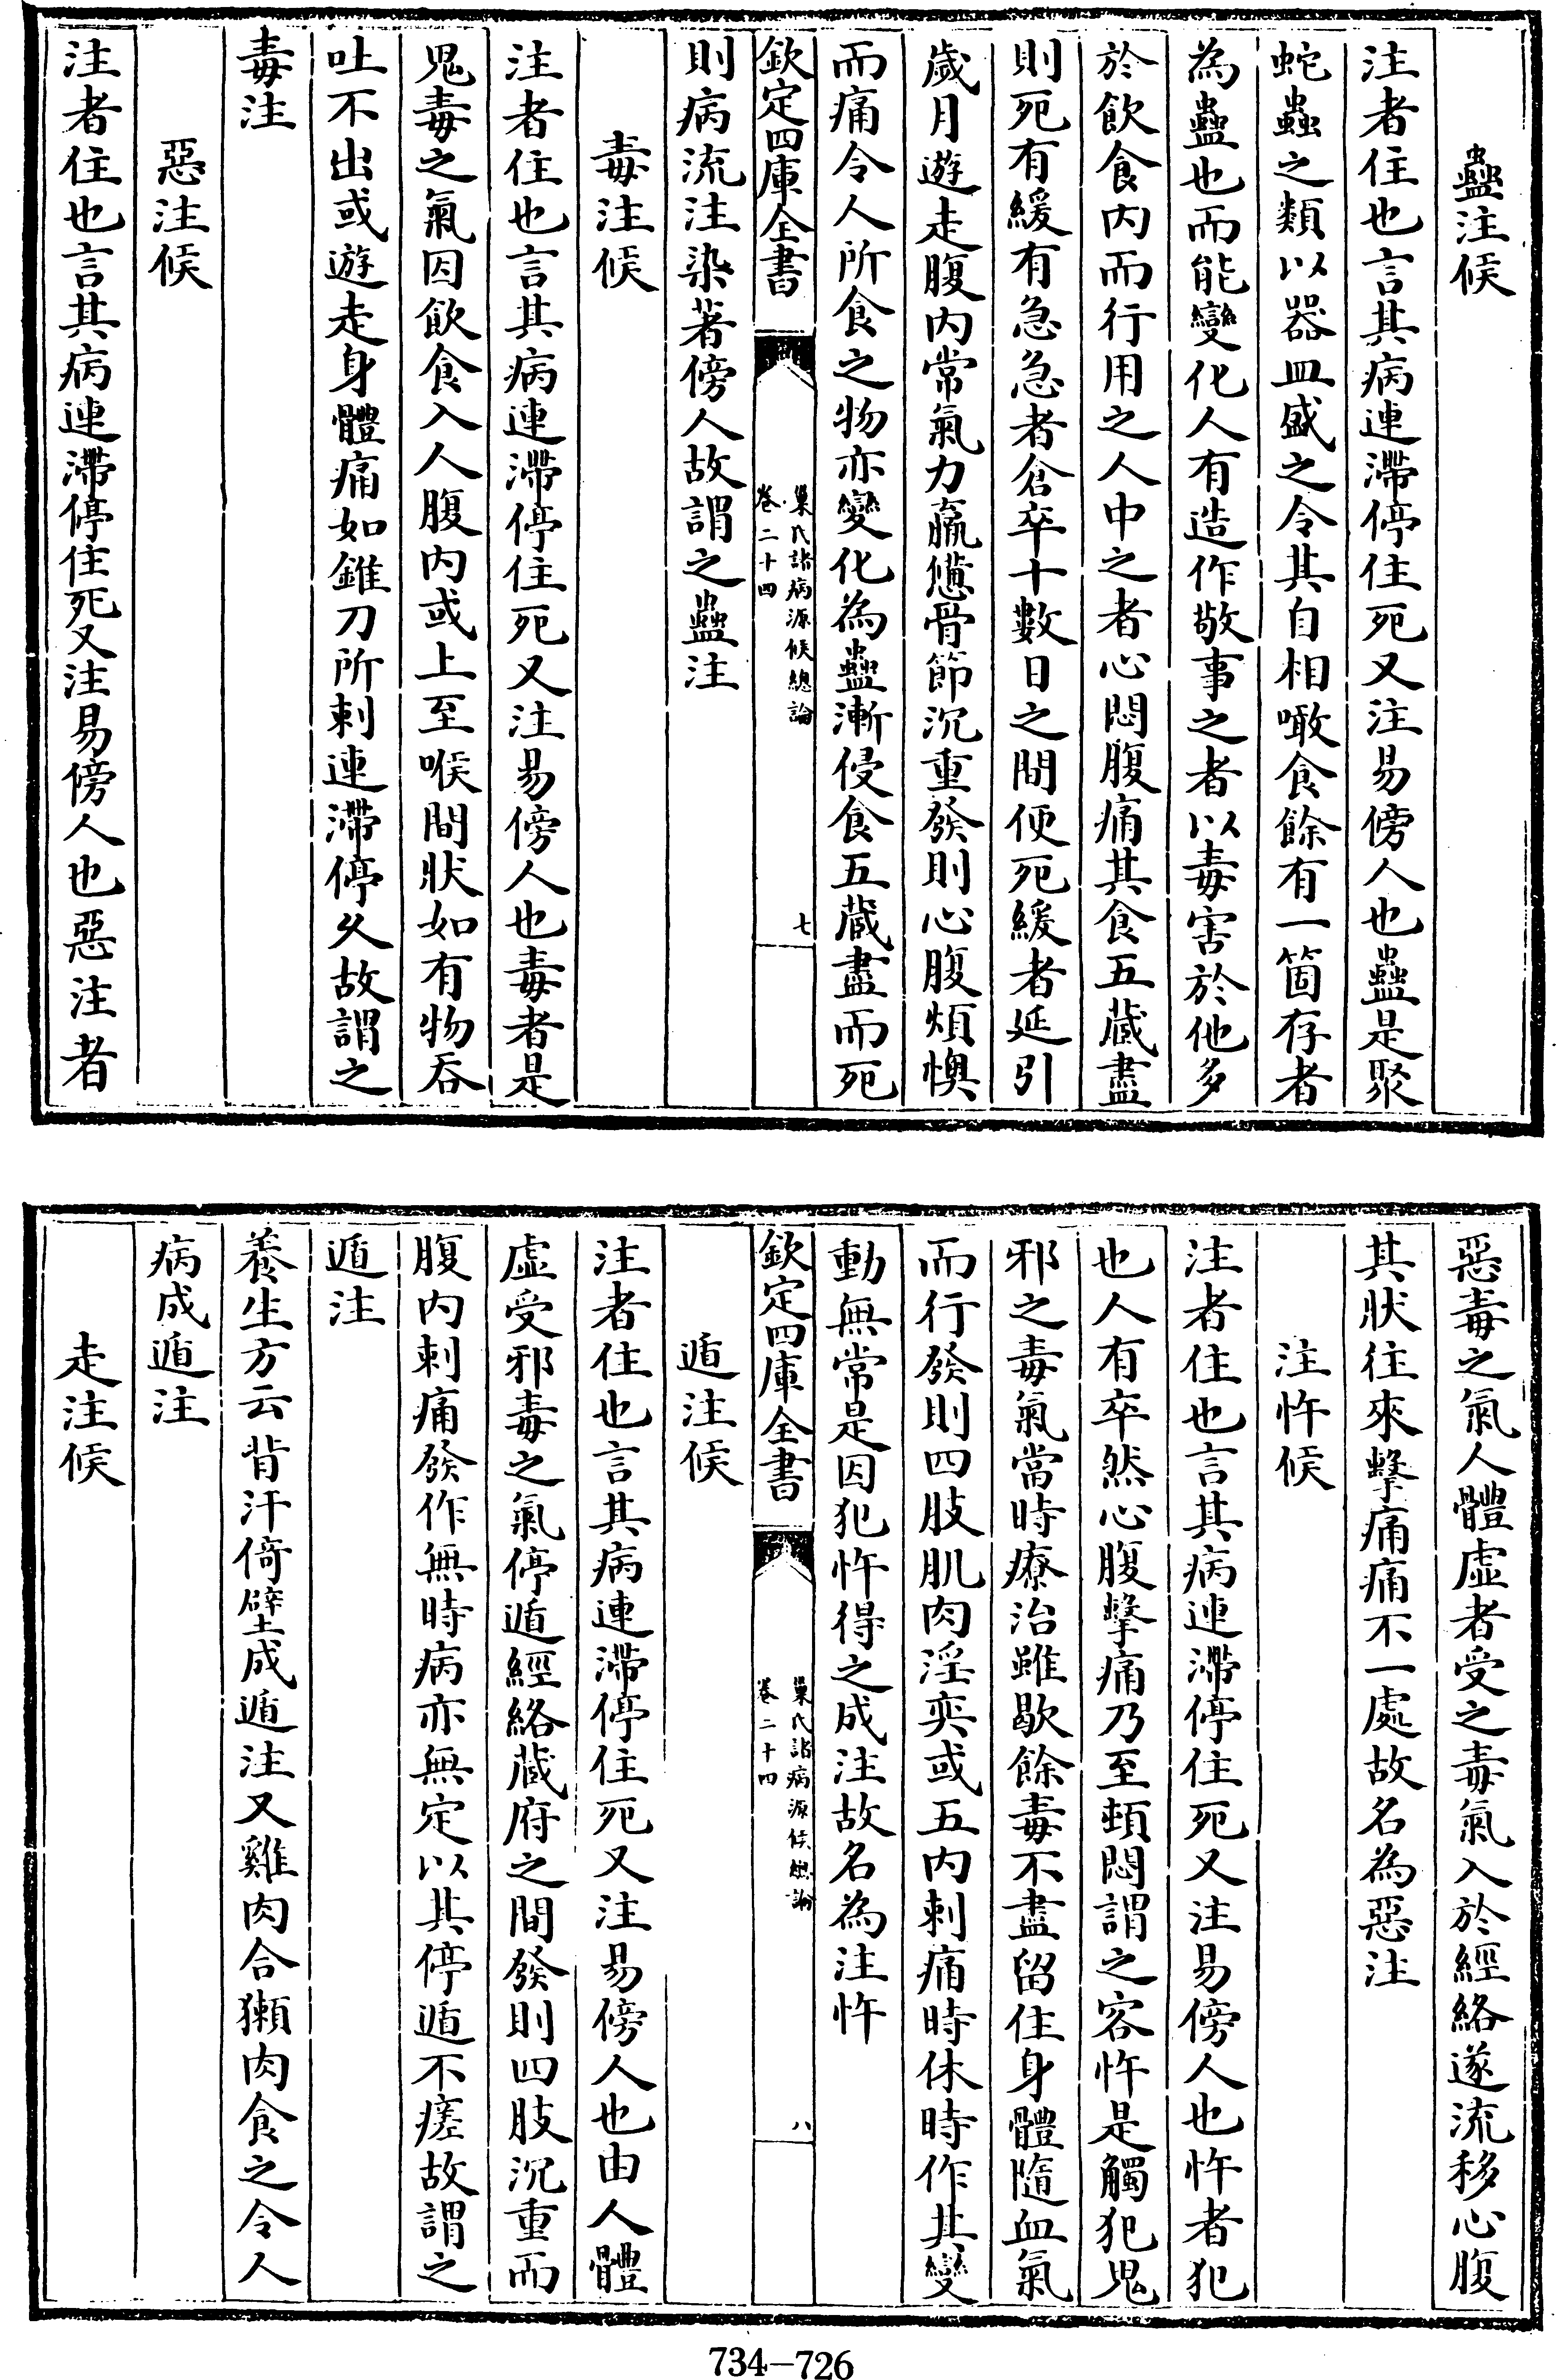 蠱注候
注者住也言其病連滯停住死又注易傍人也蠱是聚
蛇蟲之類以器皿盛之令其自相噉食餘有一箇存者
為蠱也而能變化人有造作敬事之者以毒害於他多
於飲食內而行用之人中之者心悶腹痛其食五藏盡
則死有緩有急急者倉卒十數日之間便死緩者延引
歲月遊走腹內常氣力羸憊骨節沉重發則心腹煩懊
而痛令人所食之物亦變化為蠱漸侵食五藏盡而死
欽定四庫全書
巢氏諸病源候總論
卷二十四
七
則病流注染著傍人故謂之蠱注
毒注候
注者住也言其病連滯停住死又注易傍人也毒者是
鬼毒之氣因飲食入人腹內或上至喉間狀如有物吞
吐不出或遊走身體痛如錐刀所刺連滯停久故謂之
毒注
惡注候
注者住也言其病連滯停住死又注易傍人也惡注者
惡毒之氣人體虛者受之毒氣入於經絡遂流移心腹
其狀往來擊痛痛不一處故名為惡注
注忤候
注者住也言其病連滯停住死又注易傍人也忤者犯
也人有卒然心腹擊痛乃至頓悶謂之客忤是觸犯鬼
邪之毒氣當時療治雖歇餘毒不盡留住身體隨血氣
而行發則四肢肌肉淫奕或五內刺痛時休時作其變
動無常是因犯忤得之成注故名為注忤
欽定四庫全書
巢氏諸病源候總論
卷二十四
八
遁注候
注者住也言其病連滯停住死又注易傍人也由人體
虛受邪毒之氣停遁經絡藏府之間發則四肢沉重而
腹內刺痛發作無時病亦無定以其停遁不瘥故謂之
遁注
養生方云背汗倚壁成遁注又雞肉合獺肉食之令人
病成遁注
走注候
734-726